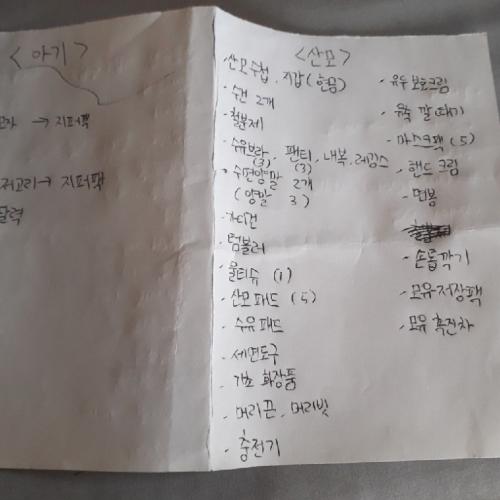 <아기>
→ 지퍼팩
저고리→ 지퍼팩
<산모>
· 산모수첩, 지갑(현금)
· 수건 2개
· 철분제
· 수유브라, 팬티, 내복, 레깅스
(3) (3)
· 수면양말 2개
(양말 3)
· 가디건
· 텀블러
· 물티슈 (1)
· 산모패드 (5)
· 수유패드
· 세면도구
· 기초 화장품
· 머리끈, 머리빗
· 충전기
· 유두보호크림
· 유축 깔때기
· 마스크팩 (5)
· 핸드크림
· 면봉
· 손톱깎기
· 모유저장팩
· 모유 촉진차